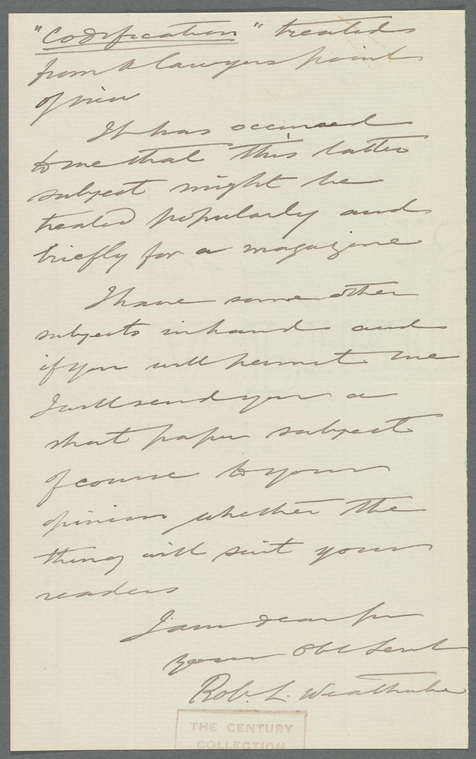 "Codification" treated
from a lawyers point
of view
It has occurred
to me that this latter
subject might be
treated popularly and
briefly for a magazine
I have some other
subjects in hand and
if you will permit me
I will send you a
short paper subject
of course to your
opinion whether the
thing will suit your
readers
I am dear sir
your Obt Servt
Rob. L.
THE CENTURY
COLLECTION